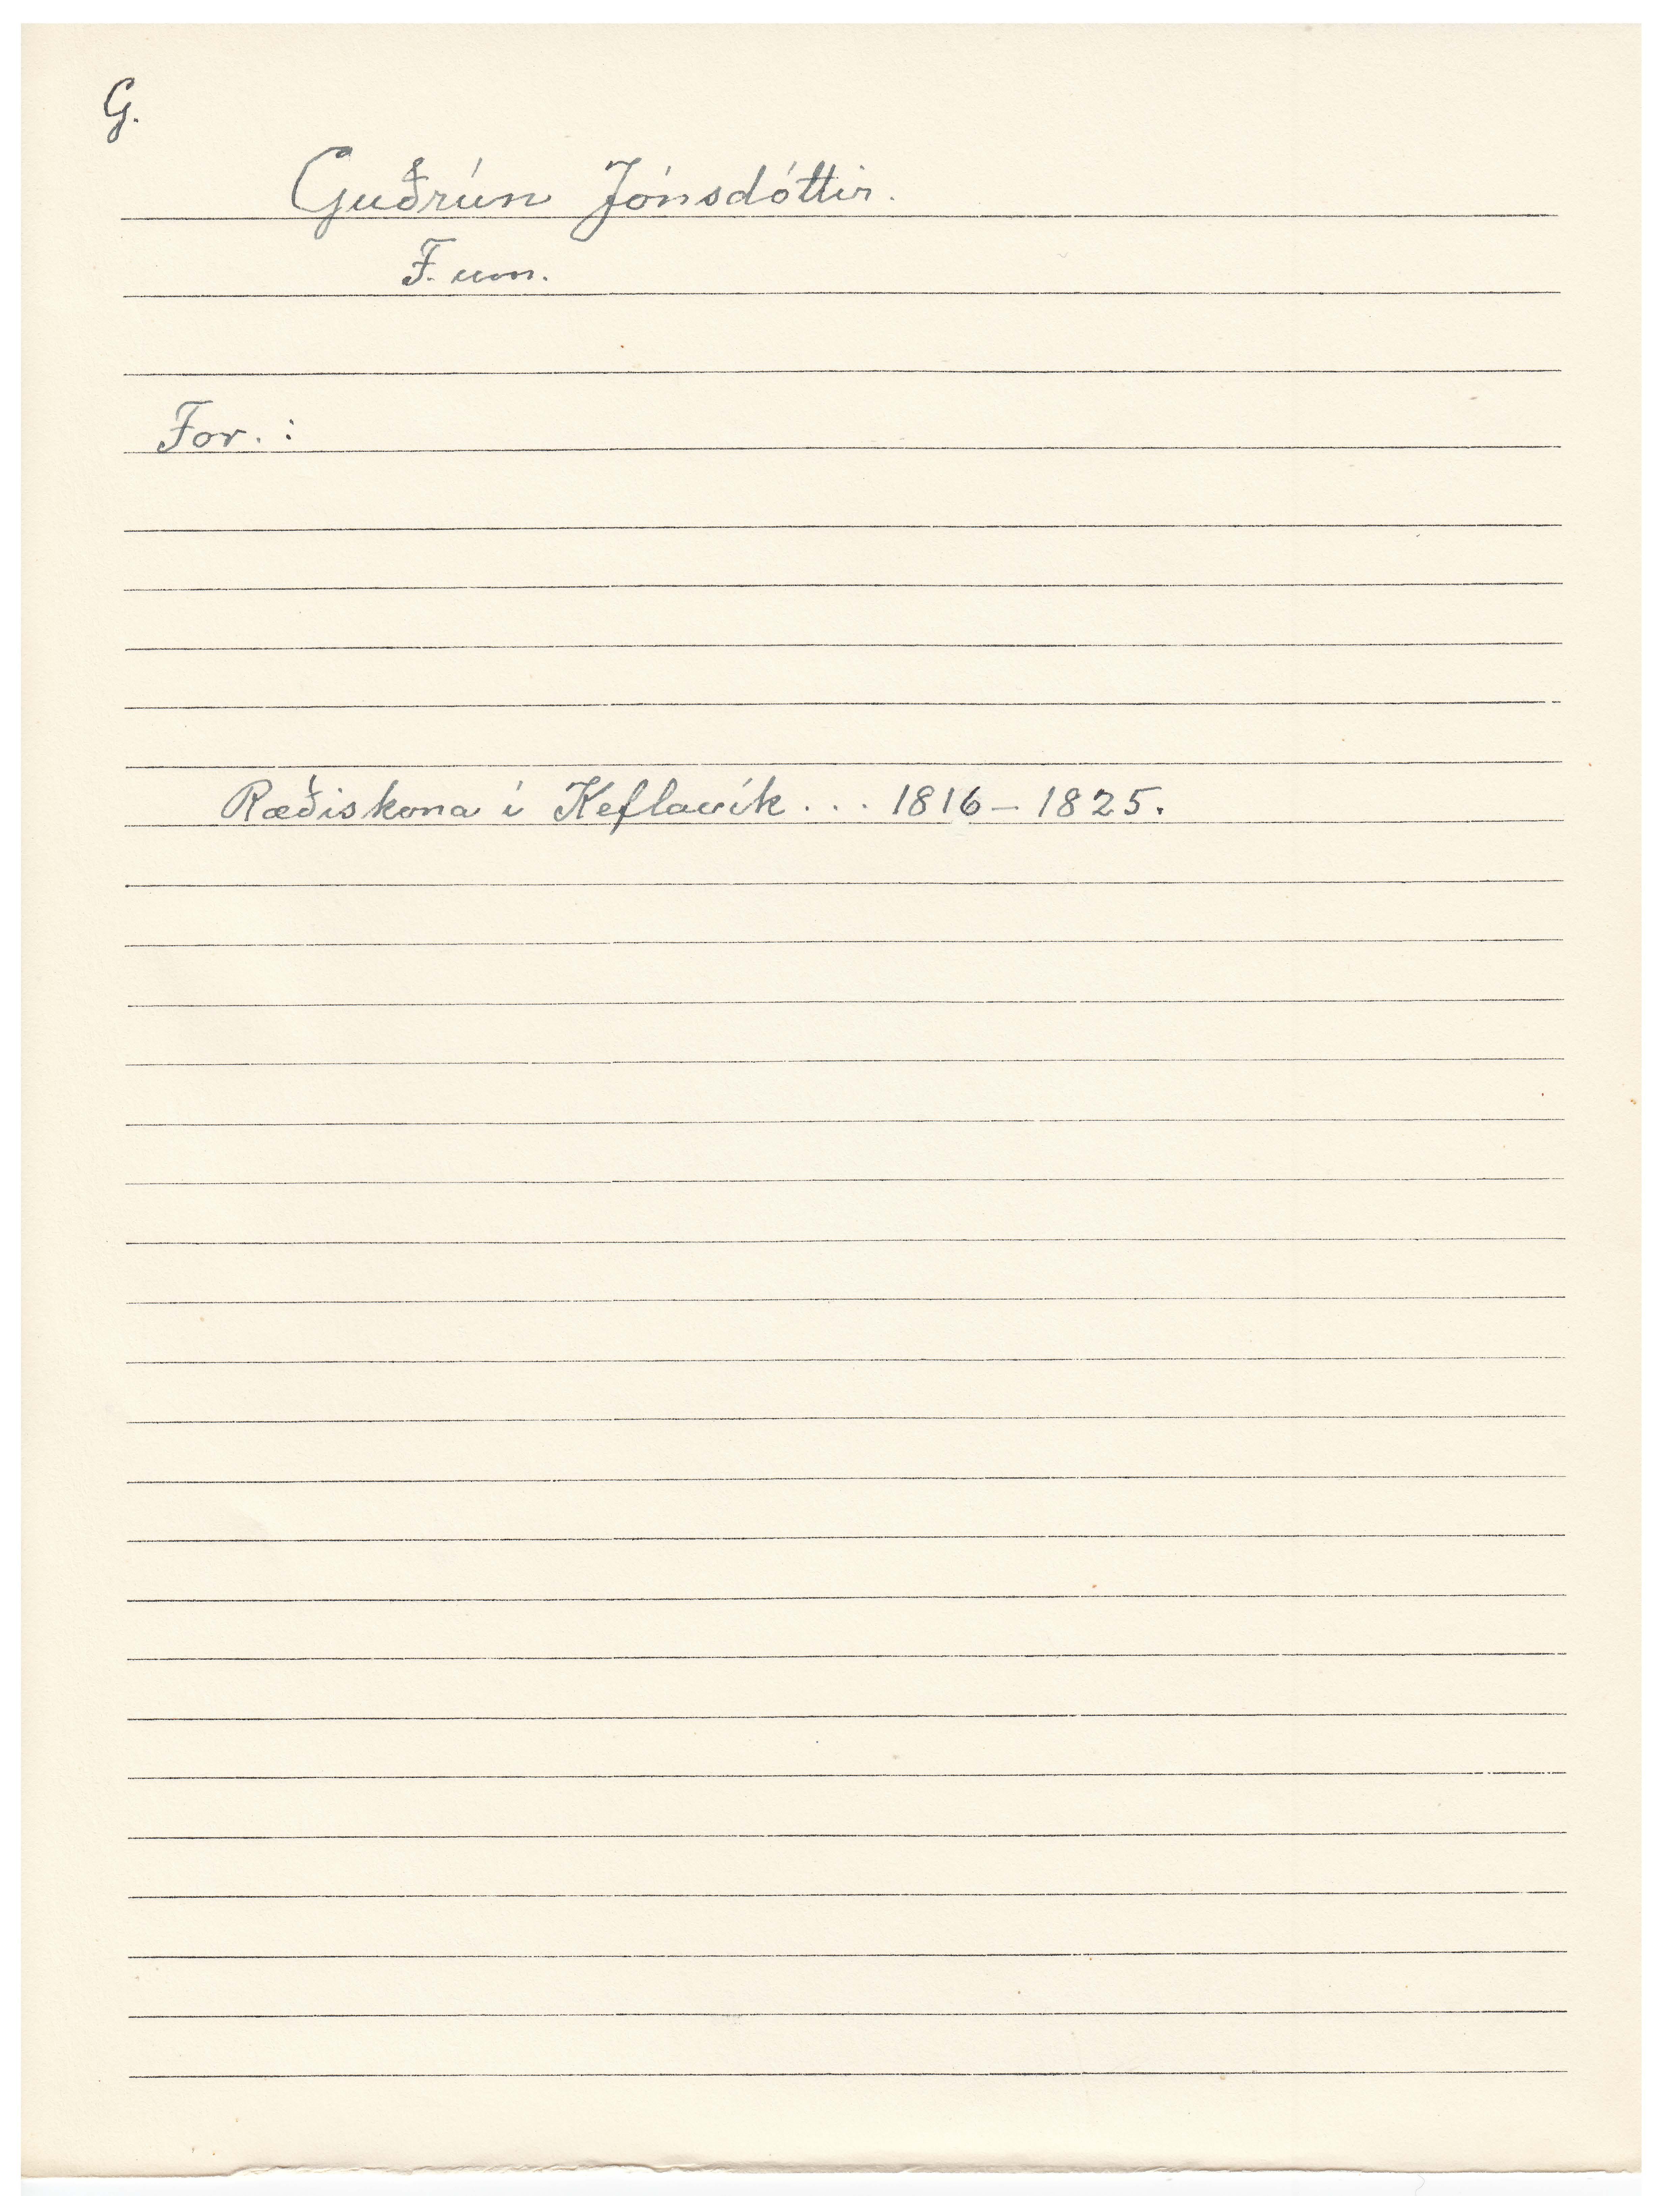 G.
Guðrún Jónsdóttir.
F. um.
For. :
Ræðiskona í Keflavík . . . 1816 – 1825.